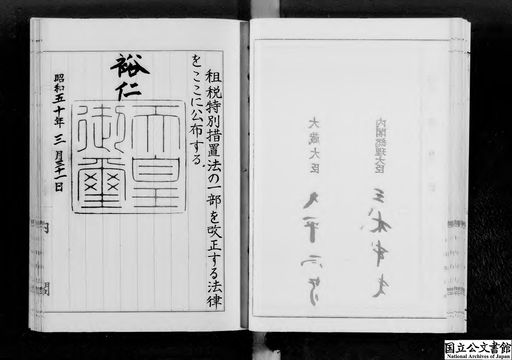 租税特別措置法の一部を改正する法律
をここに公布する
裕仁
天皇
御璽
昭和五十年三月三十一日
内閣
内閣総理大臣 三木武夫
大蔵大臣 大平正芳
国立公文書館
National Archives of Japan